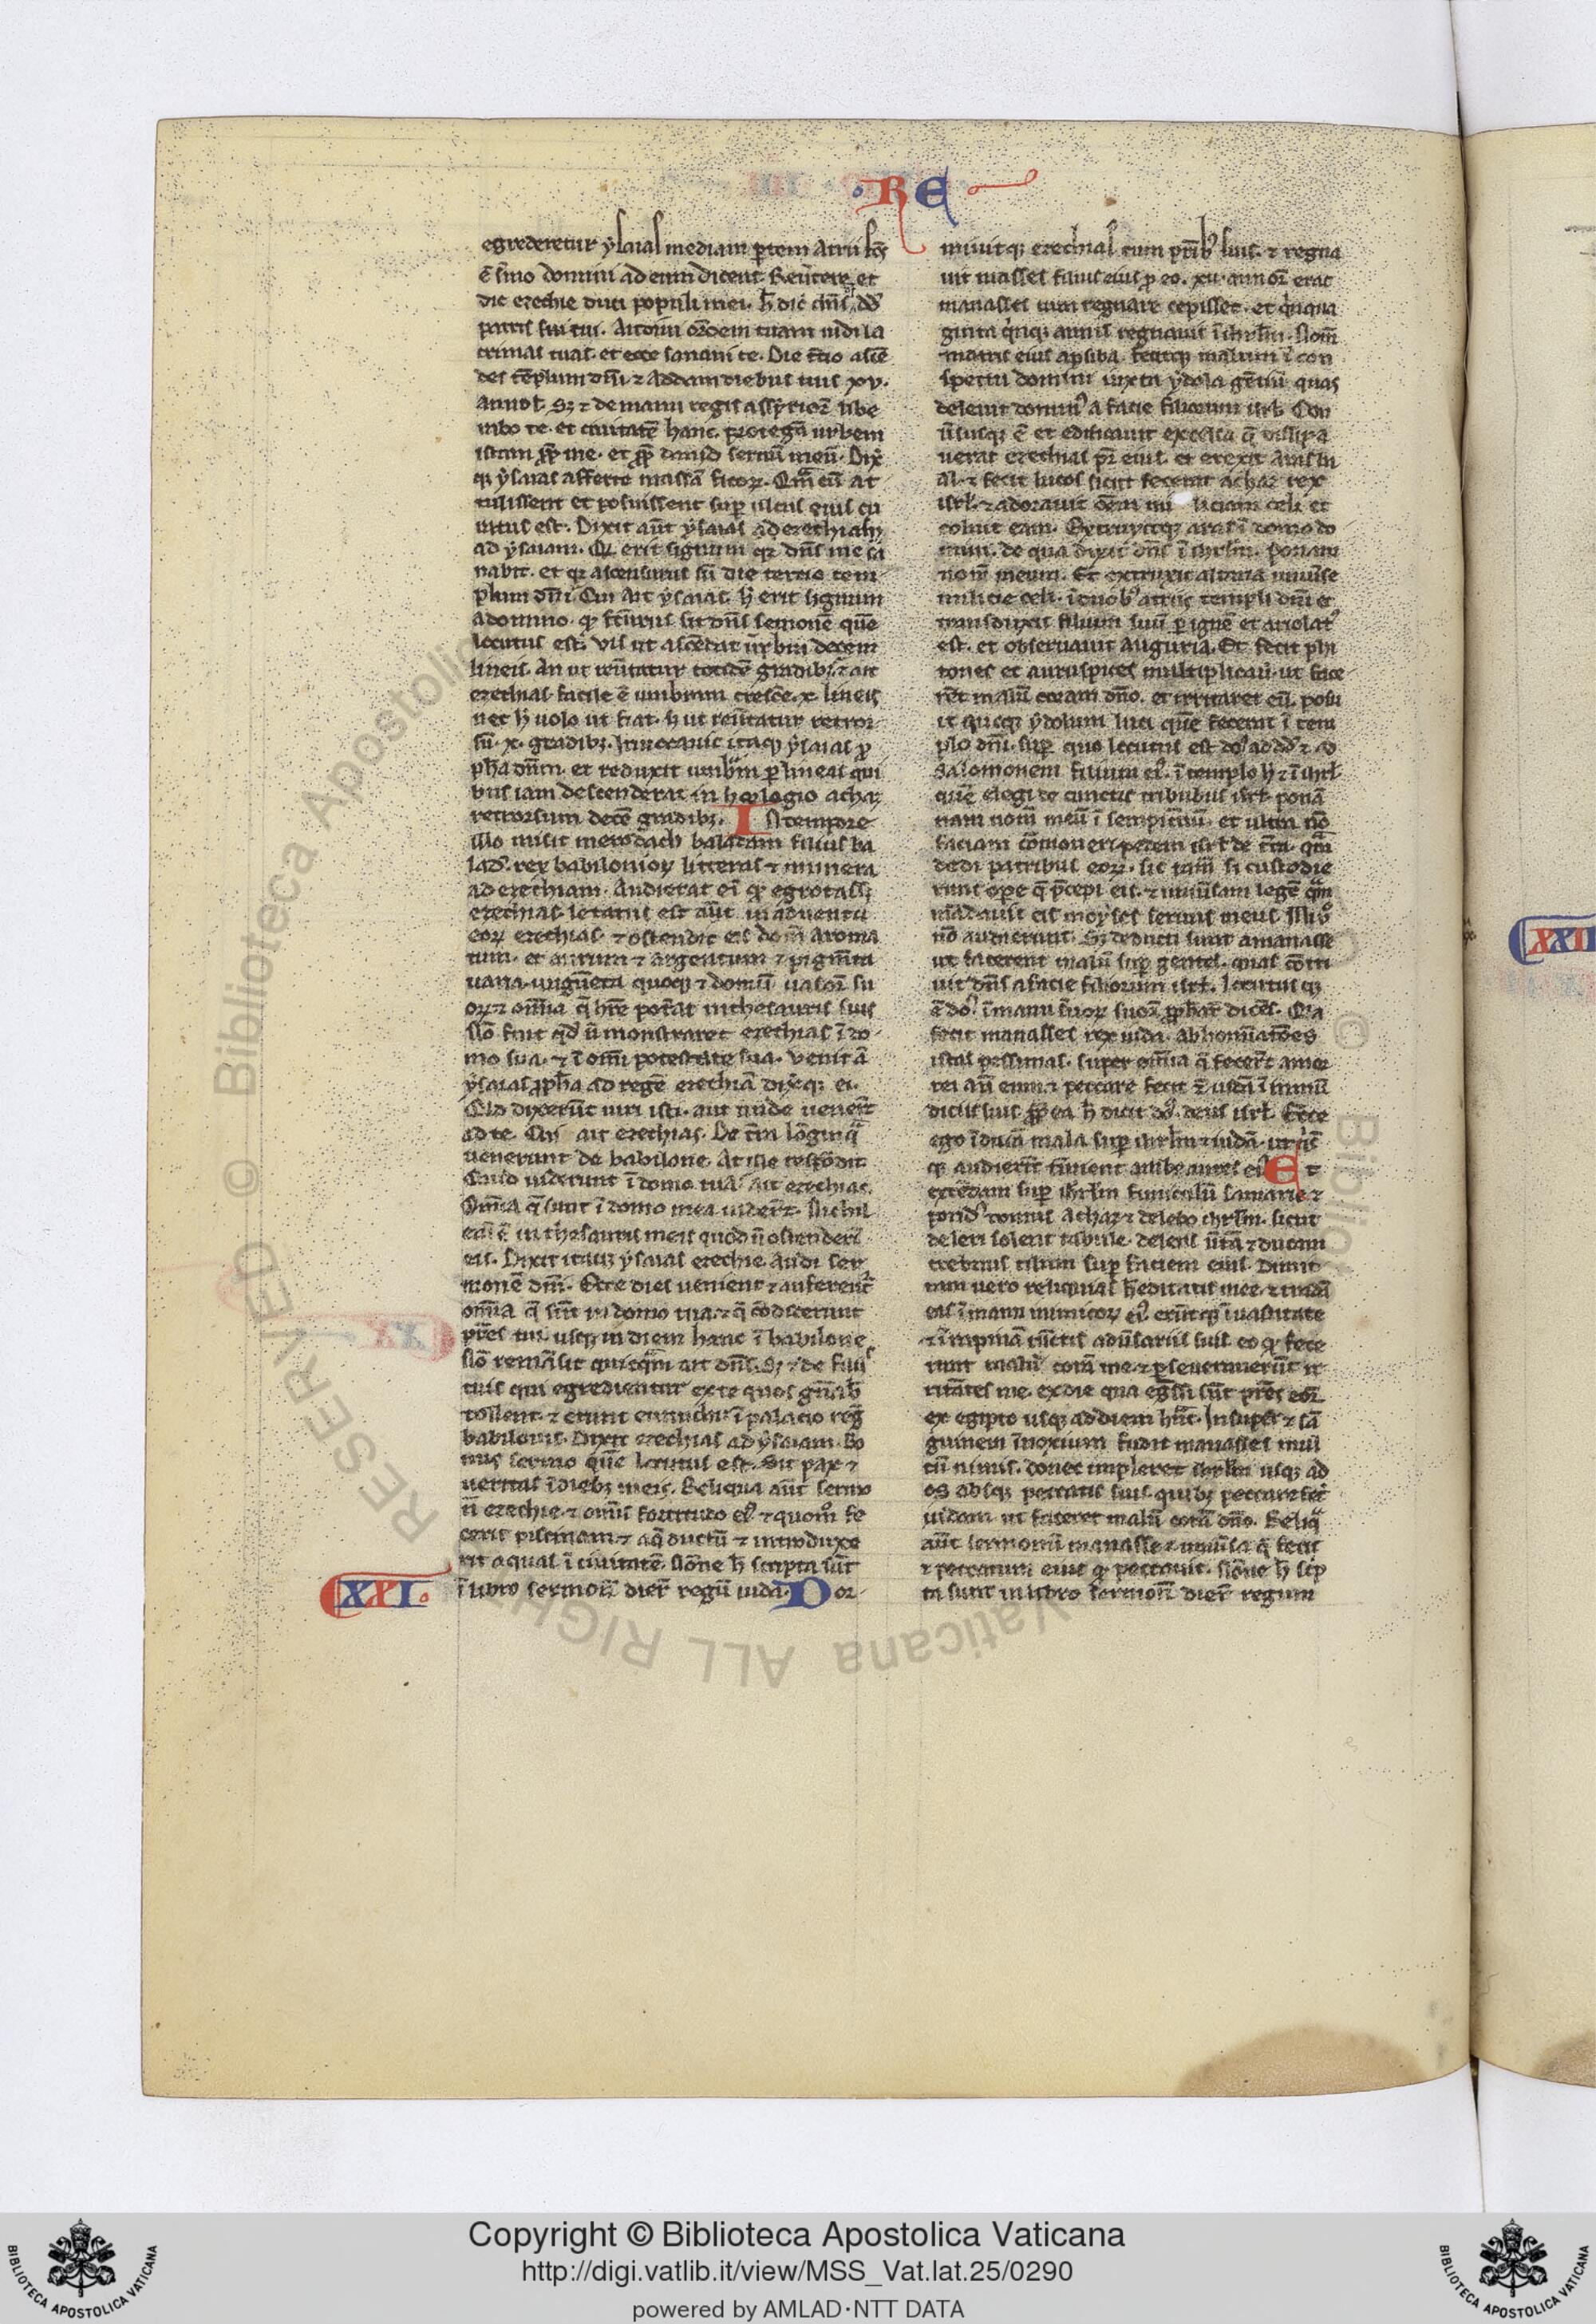 · RE
egrederetur ysaias mediam ꝑtem atrii fc̄s
ē ẜmo domini ad eum dicens Reūtere et
dic ezechie duci populi mei. h̄ dic̄ dn̄s dd̄
patris sui tui. Audiui or̄oem tuam uidi la
crimas tuas et ecce sanaui te. Die t̄cio ascē
des tēplum dn̄i ⁊ addam diebus tuis xv.
annos. Sꝫ ⁊ de manu regis assyrioꝝ libe
rabo te. et ciuitatē hanc. protegā urbem
istam ꝓp̄ me. et ꝓp̄ dauid seruū meū. Dix̄
qꝫ ysaias afferte massā ficoꝝ. Qm̄ cū at
tulissent et posuissent suꝑ ulcus eius cu
ratus est. Dixit aūt ysaias ad ezechiah
ad ysaiam. Qd̄ erit signum qꝛ dn̄s me sa
nabit. et qꝛ ascensurus sū die tertio tem
plum dn̄i. Cui ait ysaias. h̄ erit signum
a domino. qꝫ fc̄urus sit dn̄s sermonē quē
locutus est. Vis ut ascēdat ūmbra decem
lineis. An ut reūtatur totidē gradibꝫ. ⁊ ait
ezechias facile ē umbram cresc̄e .x. lineis
nec h̄ uolo ut fiat. h̄ ut reūtatur retror
sū .x. gradibꝫ. Inuocauit itaqꝫ ysaias ꝓ
ph̄a dn̄m. et reduxit umb̄m ꝑ lineas qui
bus iam descenderat in horologio achaz
retrorsum decē gradibꝫ. In tempore
illo misit merodach baladam filius ba
ladā. rex babilonioꝝ litteras ⁊ munera
ad ezechiam. Audierat ei̅ qꝫ egrotass;
ezechias. letatus est aūt in aduentu
eoꝝ ezechias. ⁊ ostendit eis dom̄ aroma
tum. et aurum ⁊ argentum ⁊ pigm̄ta
uaria. ungūeta quoqꝫ ⁊ domū uasoꝝ su
oꝝ ⁊ om̄ia q̄ hr̄e pot̄at in thesauris suis
Nō fuit qd̄ n̄ monstraret ezechias ī do
mo sua. ⁊ ī om̄i potestate sua. Venit ā
ysaias ꝓph̄a ad regē ezechiā dix̄qꝫ ei.
Qid dixerūt uiri isti. aut unde uener̄t
ad te. Cui ait ezechias. De t̄ra lōginq̄
uenerunt de babilone. At ille respōdit
Quid uiderunt ī domo tua. ait ezechias.
Om̄ia q̄ sunt ī domo mea uider̄t. Nichil
ē ē in thesauris meis quod n̄ ostenderī
eis. Dixit itaqꝫ ysaias ezechie. Audi ser
monē dn̄i. Ecce dies uenient ⁊ auferent̄
om̄ia q̄ sūt in domo tua. ⁊ q̄ cōdiderunt
pr̄es tui usqꝫ in diem hanc ī babilone
Nō remāsit quicq̄m ait dn̄s. Sꝫ ⁊ de filiis
tuis qui egredientur ex te quos gn̄ab̄
tollent ⁊ erunt eunuchi ī palacio reḡ
babilonis. Dixit ezechias ad ysaiam. Bo
nus sermo quē locutus est. Sit pax ⁊
ueritas ī diebꝫ meis. Reliqua aūt sermo
n̄ ezechie ⁊ om̄is fortitudo eiꝰ ⁊ quom̊ fe
cerit piscinam ⁊ aq̄ ductū ⁊ introduxe
rit aquas ī ciuitatē. Nōne h̄ scripta sūt
XXI. ī libro sermonū dier̄ regū iuda. Dor
miuitqꝫ ezechias cum pr̄ibꝰ suis. ⁊ regna
uit masses filius eius ꝓ eo. xii annoꝝ erat
manasses cum regnare cepisset. et q̄nqua
ginta q̄nqꝫ annis regnauit ī ihrl̄m. Nom̄
matris eius apsiba. fecitqꝫ malum ī con
spectu domini iuxta ydola gētiū quas
deleuit dominꝰ a facie filiorum isrl̄. Con
ūsusqꝫ ē et edificauit excelsa q̄ dissipa
uerat ezechias pr̄ eius. et erexit aras ba
al. ⁊ fecit lucos sicut fecerat achaz rex
isrl̄. ⁊ adorauit om̄em mi liciam celi et
coluit eam. Extruxitqꝫ aras ī domo do
mini. de qua dixit dn̄s ī ihrl̄m. Ponam
nom̄ meum. Et extruxit altaria uniūse
milicie celi. ī duobꝰ atriis templi dn̄i et
transduxit filium suū ꝑ ignē et ariolatꝰ
est. et obseruauit auguria. Et fecit phi
tones et auruspices multiplicauit. ut face
ret malū coram dn̄o. et irritaret eū. posu
it quoqꝫ ydolum luci quē fecerat ī tem
plo dn̄i. suꝑ quo locutus est dn̄s ad dd̄ ⁊ ad
Salomonem filium eiꝰ. ī templo h̄ ⁊ ī ihrl̄
quē elegi de cunctis tribubus isrl̄ ponā
nam nom̄ meū ī sempitnū. et ultra nō
faciam cōmoueri pedem isrl̄ de t̄ra. quā
dedi patribus eoꝝ. sic tam̄ si custodie
runt opere q̄ p̄cepi eis. ⁊ uniūsam legē quā
mādauit eis moyses seruus meus. Illi ū
nō audierunt. Sꝫ seducti sunt a manasse
ut facerent malū suꝑ gentes. quas cōtri
uit dn̄s a facie filiorum isrl̄. locutus qꝫ
ē dn̄s ī manu ẜuoꝝ suoꝝ ꝓph̄aꝝ dicēs. Qia
fecit manasses rex iuda abhominatōes
istas pessimas. super om̄ia q̄ fecer̄t amor
rei an̄ eum ⁊ peccare fecit ⁊ iudā ī inmū
diciis suis ꝓp̄ ea h̄ dicit dn̄s deus isrl̄. Ecce
ego īducā mala suꝑ ihrl̄m ⁊ iudā. ut q̄is
qꝫ audierit tīnient ambe aures eiꝰ. Et
extēdam suꝑ ihrl̄m funiculū samarie ⁊
pondꝰ domus achaz ⁊ delebo ihrl̄m. sicut
deleri solent tabule. delens ūtā ⁊ ducam
crebrius stilum suꝑ faciem eius. Dimit
tam uero reliquias h̄editatis mee ⁊ tradā
eas ī manu inimicoꝝ eiꝰ. erūtqꝫ ī uastitate
⁊ ī rapinā cūctis adūsariis suis eo qꝫ fece
runt malū corā me ⁊ ꝑseuerauerūt ir
ritātes me. ex die qua eḡssi sūt pr̄es eoꝝ
ex egipto usqꝫ ad diem hūc. Insuper ⁊ sā
guinem īnoxium fudit manasses mul
tū nimis. donec impleret ihrl̄m usqꝫ ad
os absqꝫ peccatis suis. quibꝫ peccare fec̄
iudam ut faceret malū corā dn̄o. Reliq̄
aūt sermonū manasse ⁊ uniūsa q̄ fecit
⁊ peccatum eius qꝫ peccauit. Nōne h̄ sc̄p
ta sunt in libro sermonū dier̄ regum
XXII
Copyright © Biblioteca Apostolica Vaticana
http://digi.vatlib.it/view/MSS_Vat.lat.25/0290
powered by AMLAD·NTT DATA